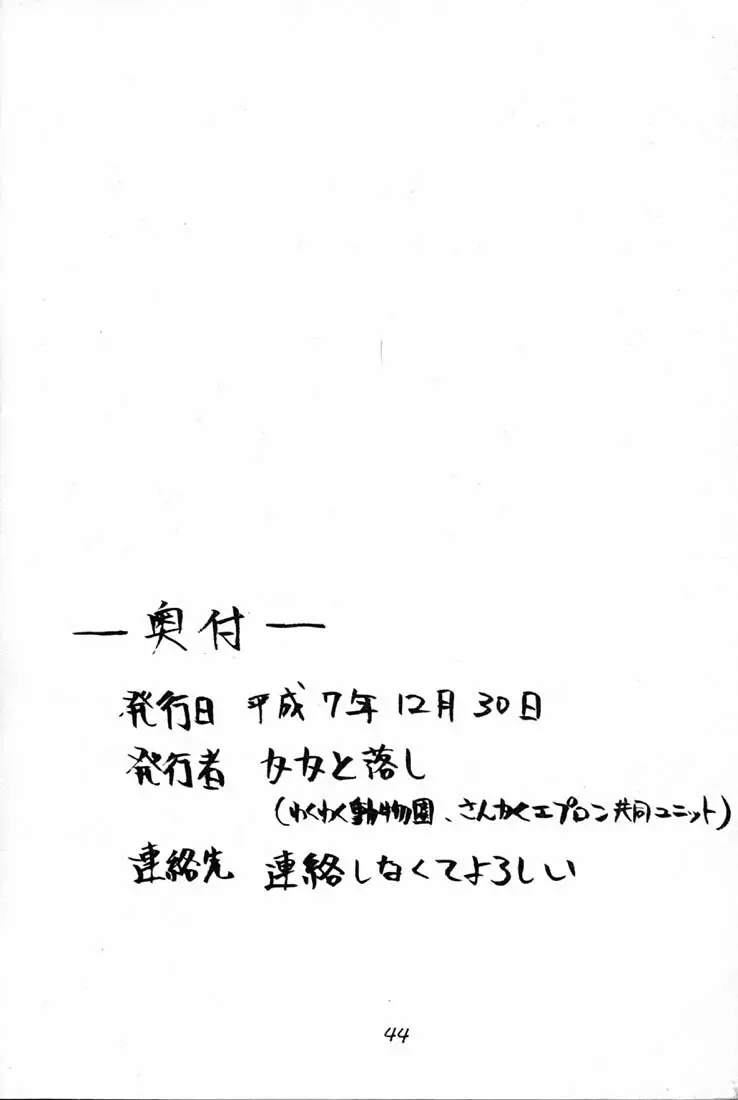 ― 奥付 ―
発行日 平成7年12月30日
発行者 かかと落し
(わくわく動物園、さんかくエプロン共同ユニット)
連絡先 連絡しなくてよろしい
44